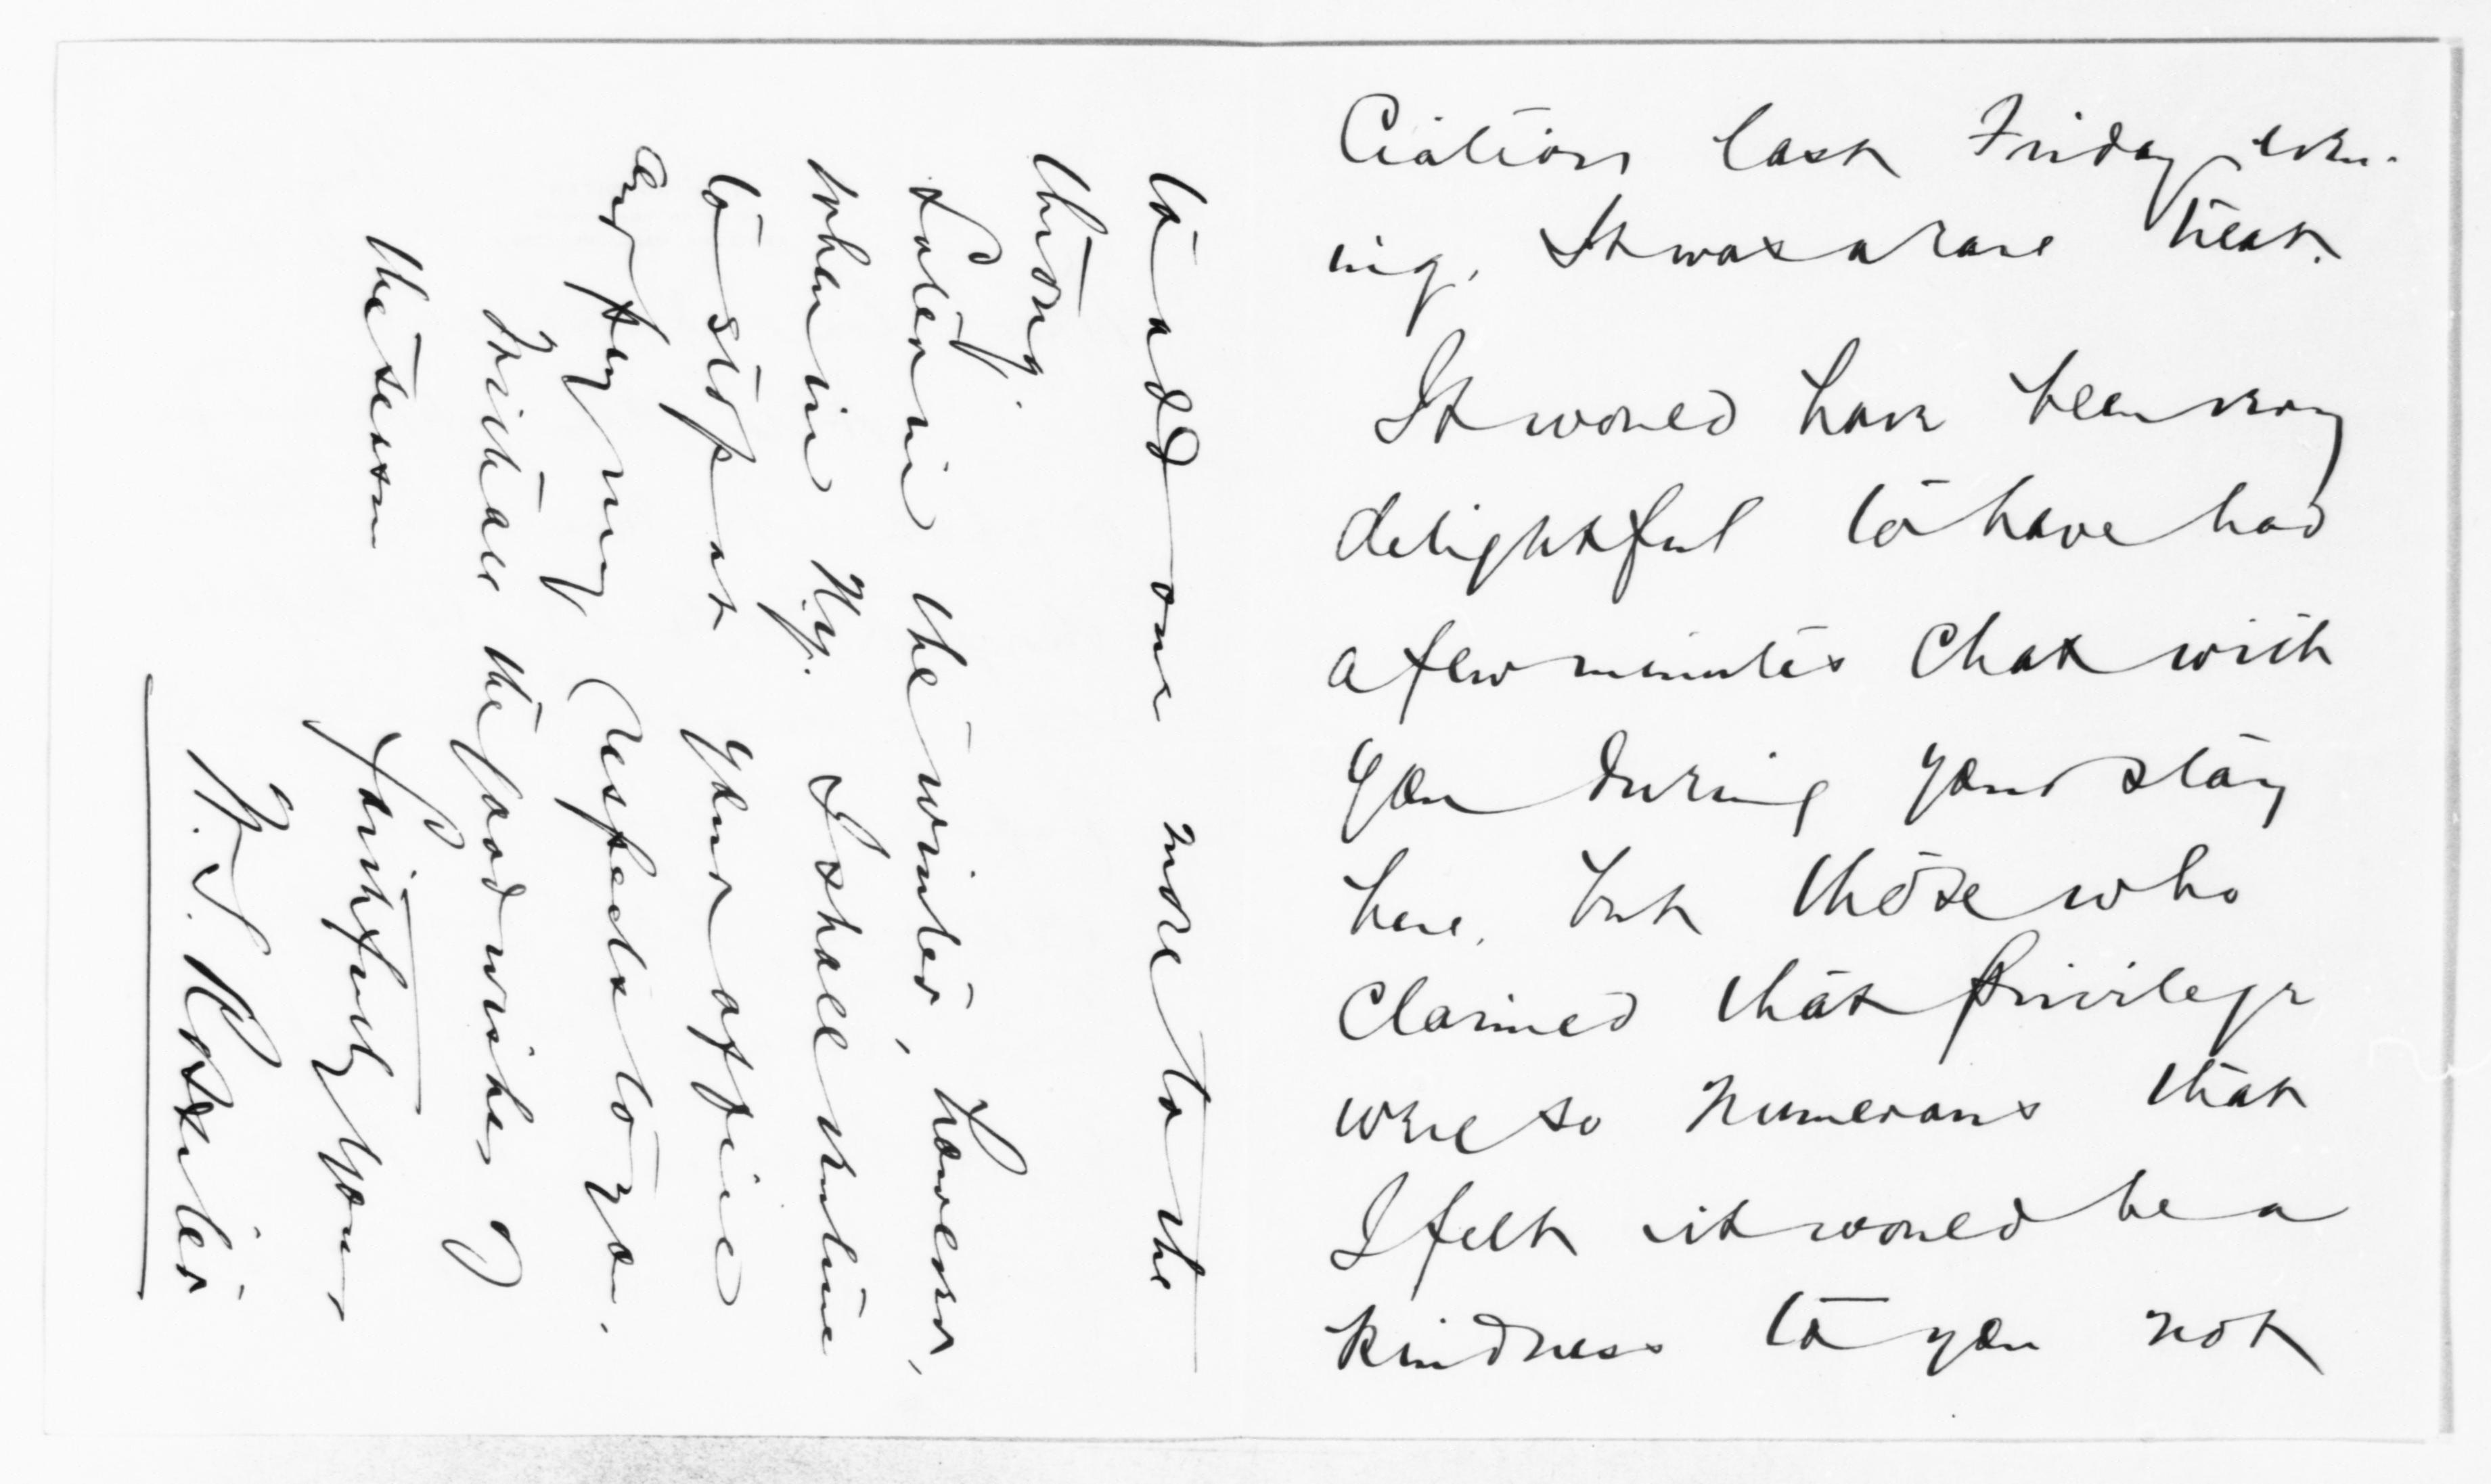 ciation last Friday eve-
ning. It was a rare treat.
It would have been very
delightful to have had
a few minutes chat with
you during your stay
here, but those who
claimed that privilege
were so numerous that
I felt it would be a
kindness to you not
to add one more to the
throng.
Later in the winter, however,
when in N.y. I shall venture
to stop at your office
and pay my respects to you.
With all the good wishes of
the season
Faithfully yours,
W. S.